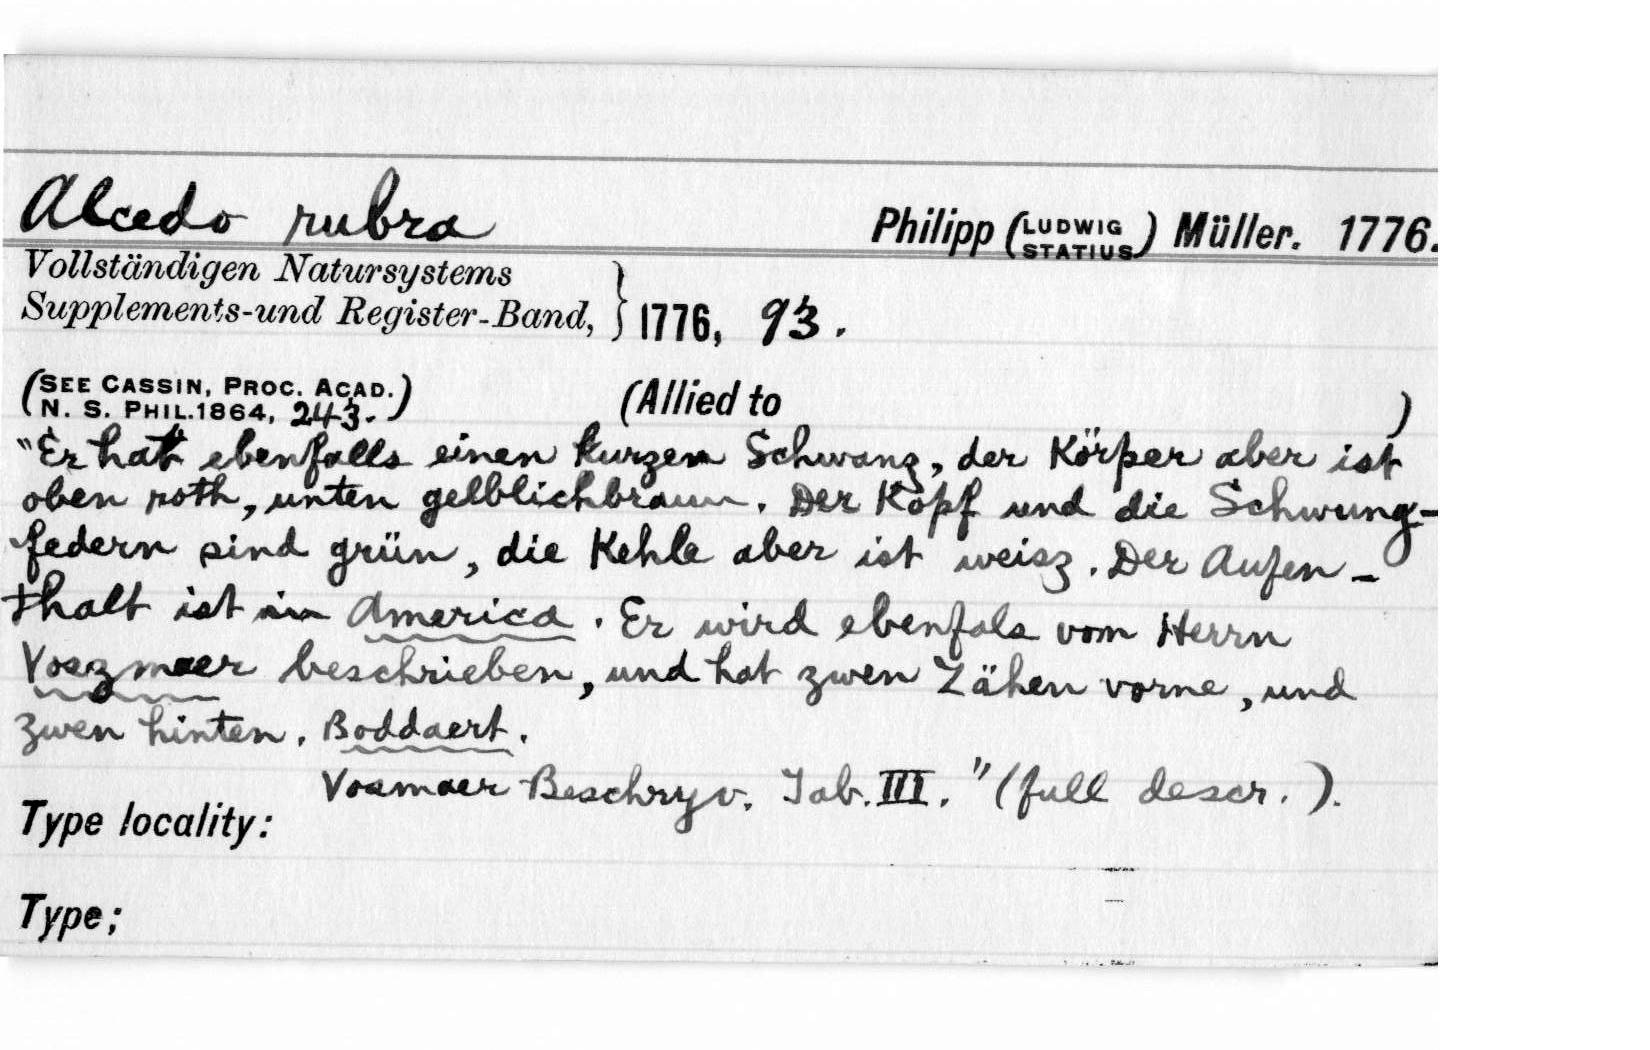 Alcedo rubra Philipp (LUDWIG STATIUS) Müller. 1776.
Vollständigen Natursystems
Supplements-und Register-Band, } 1776, 93.
(SEE CASSIN, PROC. ACAD. (Allied to )
N. S. PHIL. 1864, 243.)
"Er hat ebenfalls einen kurzen Schwanz, der Körper aber ist
oben roth, unten gelblichbraun. Der Kopf und die Schwung-
federn sind grün, die Kehle aber ist weisz. Der Aufen-
thalt ist in America. Er wird ebenfals vom Herrn
Voszmaer beschrieben, und hat zwen Zähen vorne, und
zwen hinten. Boddaert.
Vosmaer Beschryv. Tab. III." (full descr.).
Type locality:
Type;